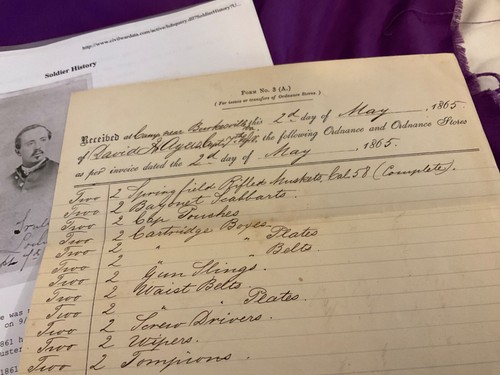 http://www.civilwardata.com/active/hdsquery.dll?SoldierHistory?U...
Soldier History
FORM No. 3 (A.)
(For issues or transfers of Ordnance Stores.)
Received at Camp near Burkesville this 2d day of May, 1865
of David A. Capt. the following Ordnance and Ordnance Stores
as per invoice dated the 2d day of May, 1865.
Two 2 Springfield Rifled Muskets, Cal 58 (Complete).
Two 2 Bayonet Scabbarts.
Two 2 Cap Pouches
Two 2 Cartridge Boxes
Two 2 " " Plates
Two 2 " " Belts
Two 2 Gun Slings.
Two 2 Waist Belts.
Two 2 " " Plates.
Two 2 Screw Drivers.
Two 2 Wipers.
Two 2 Tompions.
e was
on 9/
861 h
uster
1861